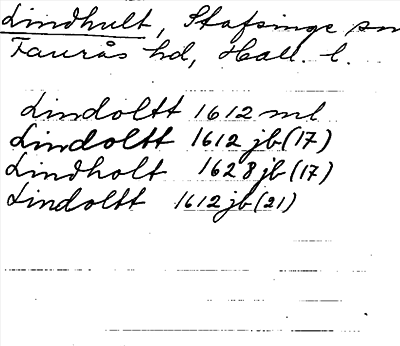 Lindhult, Stafsinge sn
Faurås hd, Hall. l.
Lindoltt 1612 ml
Lindoltt 1612 jb (17)
Lindholt 1628 jb (17)
Lindoltt 1612 jb (21)